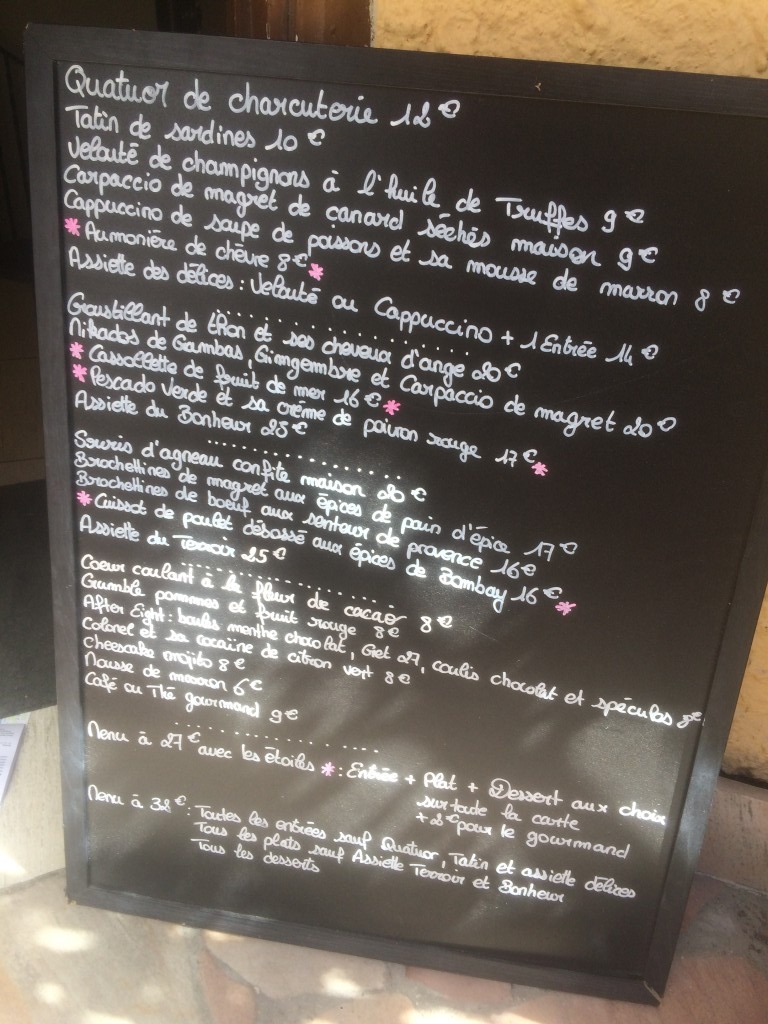 Quatuor de charcuterie 12€
Tatin de sardines 10€
Velouté de champignons à l'huile de Truffes 9€
Carpaccio de magret de canard séchés maison 9€
Cappuccino de soupe de poissons et sa mousse de marron 8€
* Aumonière de chèvre 8€ *
Assiette des délices : Velouté ou Cappuccino + 1 Entrée 14€
Croustillant de thon et ses cheveux d'ange 20€
Mikados de Gambas, Gimgembre et Carpaccio de magret 20€
* Cassollette de fruit de mer 16€ *
* Pescado Verde et sa crème de poivron rouge 17€ *
Assiette du Bonheur 28€
Souris d'agneau confite maison 20€
Brochettines de magret aux épices de pain d'épice 17€
Brochettines de boeuf aux senteur de provence 16€
* Cuissot de poulet débossé aux épices de Bombay 16€ *
Assiette du Terroir 25€
Coeur coulant à la fleur de cacao 8€
Crumble pommes et fruit rouge 8€
After Eight : boules menthe chocolat, Get 27, coulis chocolat et spéculos 8€
Colonel et sa cocaïne de citron vert 8€
Cheescake mojito 8€
Mousse de marron 6€
Café ou Thé gourmand 9€
Menu à 27€ avec les étoiles * : Entrée + Plat + Dessert aux choix
sur toute la carte
+2€ pour le gourmand
Menu à 32€ : Toutes les entrées sauf Quatuor, Tatin et assiette délices
Tous les plats sauf Assiette Terroir et Bonheur
Tous les desserts